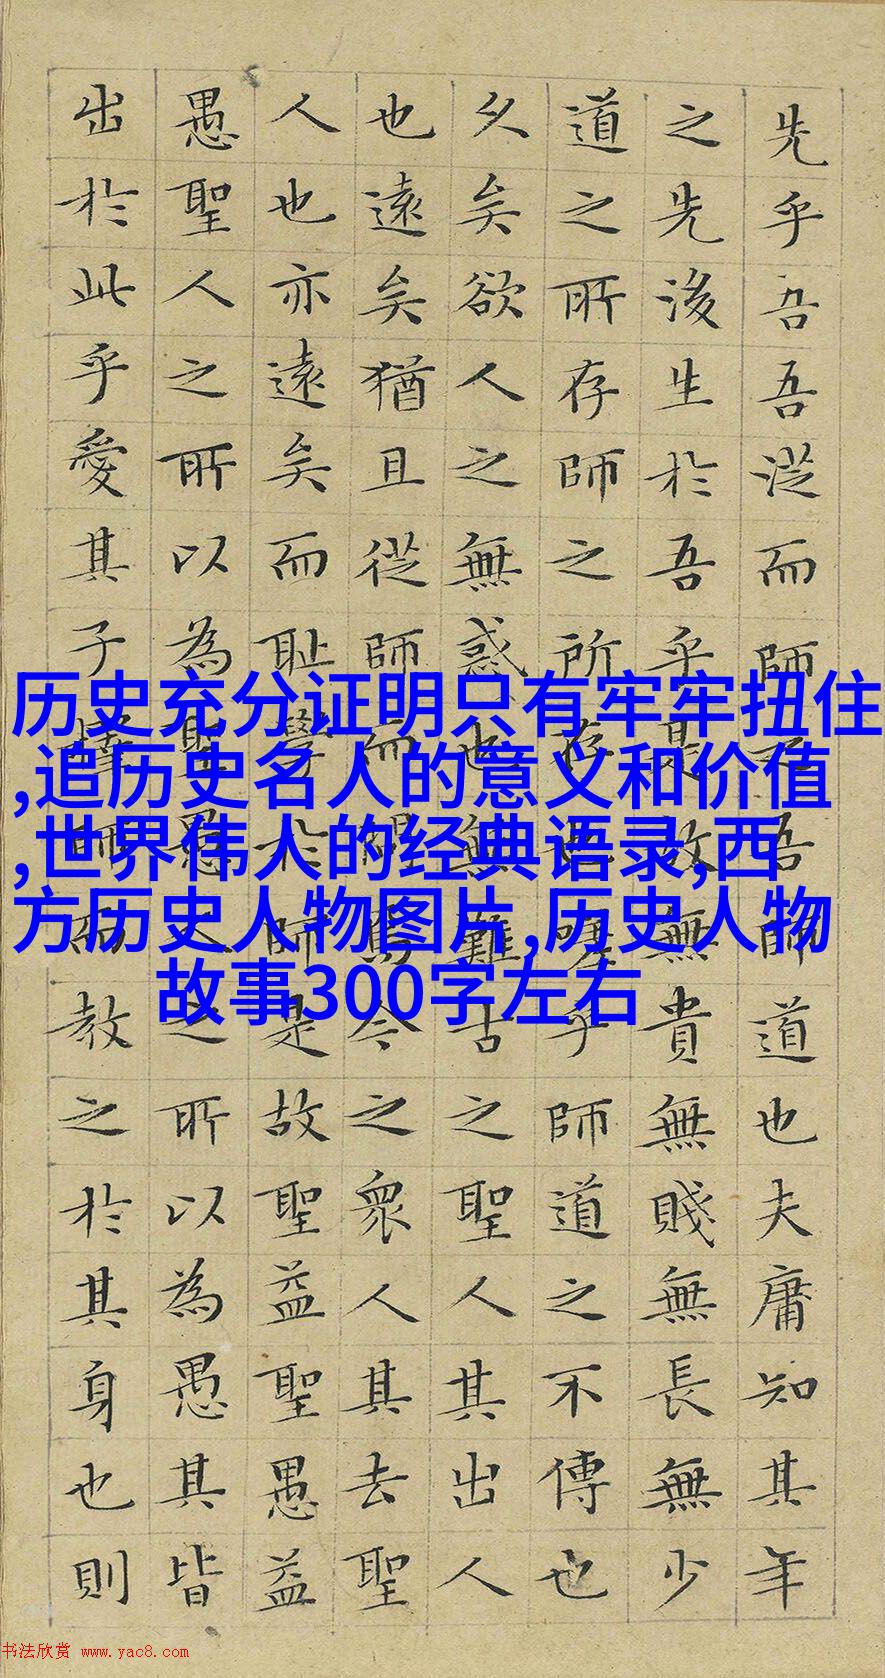 先乎吾吾從而師之吾師道也夫庸知其年
之先後生於吾乎是故無貴無賤無長無少
道之所存師之所存也嗟乎師道之不傳也
久矣欲人之無惑也無難古之聖人其出人
也遠矣猶且從師而問焉今之衆人其去聖
人也亦遠矣而耻學於師是故聖益聖愚益
愚聖人之所以為聖愚人之所以為愚其皆
出於此乎愛其子擇師而教之於其身也則
历史充分证明只有牢牢扭住
,追历史名人的意义和价值
,世界伟人的经典语录,西
方历史人物图片,历史人物
故事300字左右
书法欣赏 www.yac8.com